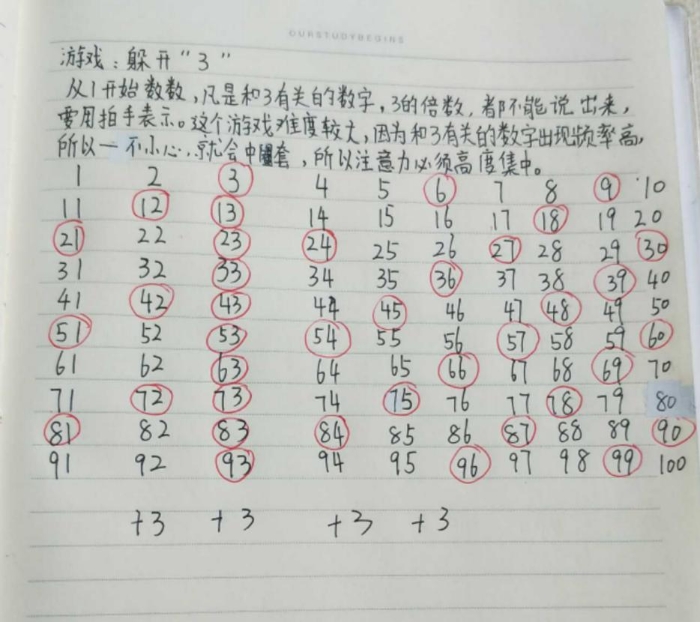 OURSTUDYBEGINS
游戏：躲开“3”
从1开始数数，凡是和3有关的数字，3的倍数，都不能说出来，
要用拍手表示。这个游戏难度较大，因为和3有关的数字出现频率高，
所以一不小心，就会中圈套，所以注意力必须高度集中。
1 2 3 4 5 6 7 8 9 10
11 12 13 14 15 16 17 18 19 20
21 22 23 24 25 26 27 28 29 30
31 32 33 34 35 36 37 38 39 40
41 42 43 44 45 46 47 48 49 50
51 52 53 54 55 56 57 58 59 60
61 62 63 64 65 66 67 68 69 70
71 72 73 74 75 76 77 78 79 80
81 82 83 84 85 86 87 88 89 90
91 92 93 94 95 96 97 98 99 100
+3 +3 +3 +3